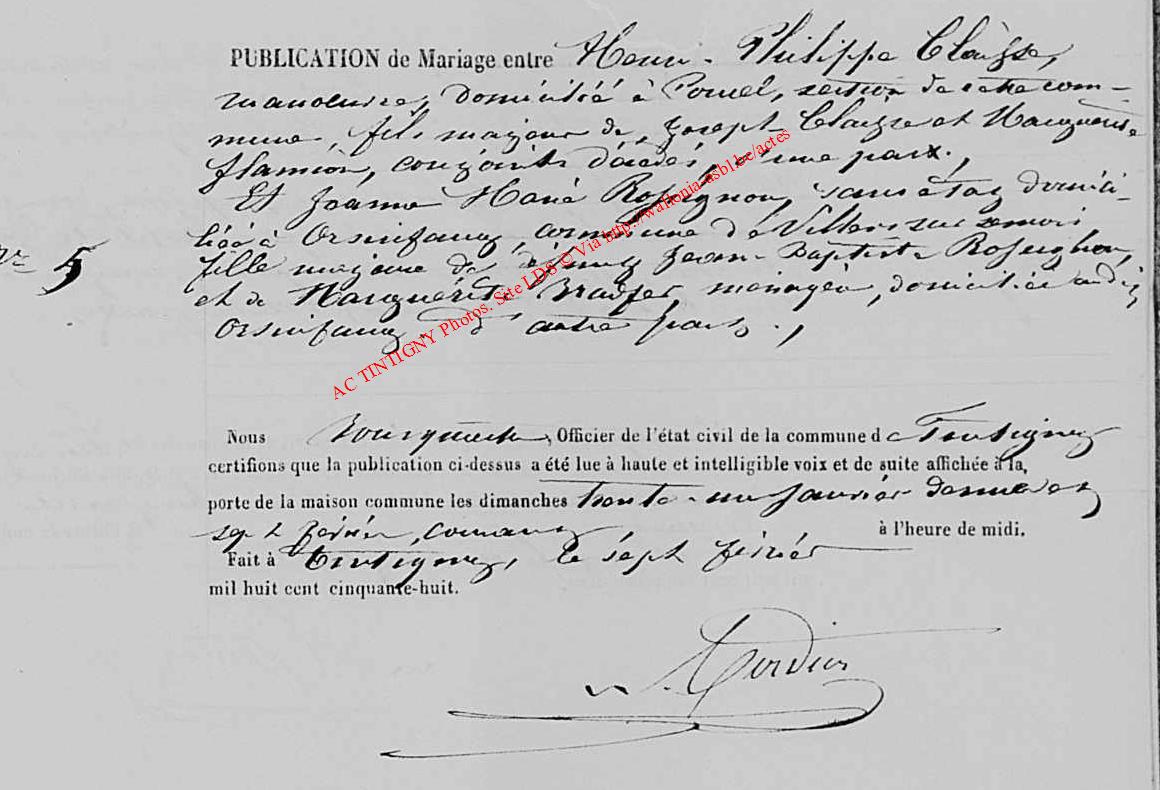 PUBLICATION de Mariage entre Henri-Philippe Claisse,
manoeuvre, domicilié à Poncel, section de cette com-
mune, fils majeur de Joseph Claisse et Marguerite
flamion, conjoints décédés, d'une part.,
Et Jeanne Marie Rossignon, sans état, domici-
liée à Orsinfaing, commune de Villers sur semoi
fille majeure de Jean-Baptiste Rossignon,
et de Marguérite Bradfer, ménagère, domiciliée audit
Orsinfaing, d'autre part.,
N° 5
Nous Bourgmestre, Officier de l'état civil de la commune de Tintigny
certifions que la publication ci-dessus a été lue à haute et intelligible voix et de suite affichée à la
porte de la maison commune les dimanches trente-un janvier dernier et
sept février, courant à l'heure de midi.
Fait à Tintigny, le sept février
mil huit cent cinquante-huit.
AC TINTIGNY Photos. Site LDS © Via http://wallonia-asbl.be/actes